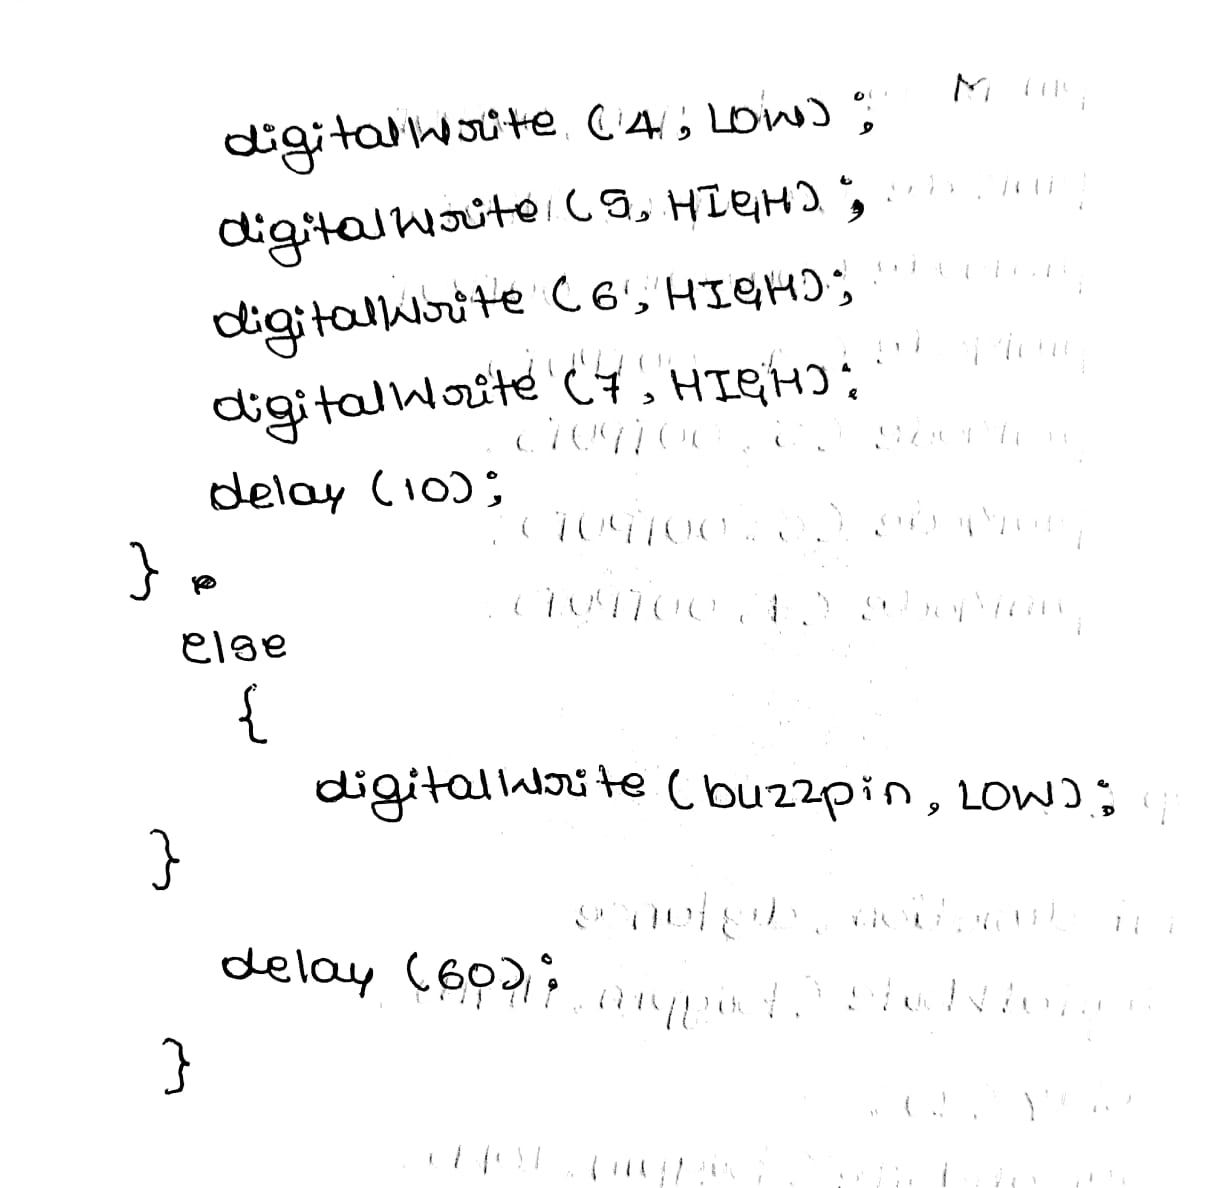 digitalWrite (4, LOW);
digitalWrite (5, HIGH);
digitalWrite (6, HIGH);
digitalWrite (7, HIGH);
delay (10);
}
else
{
digitalWrite (buzzpin, LOW);
}
delay (60);
}